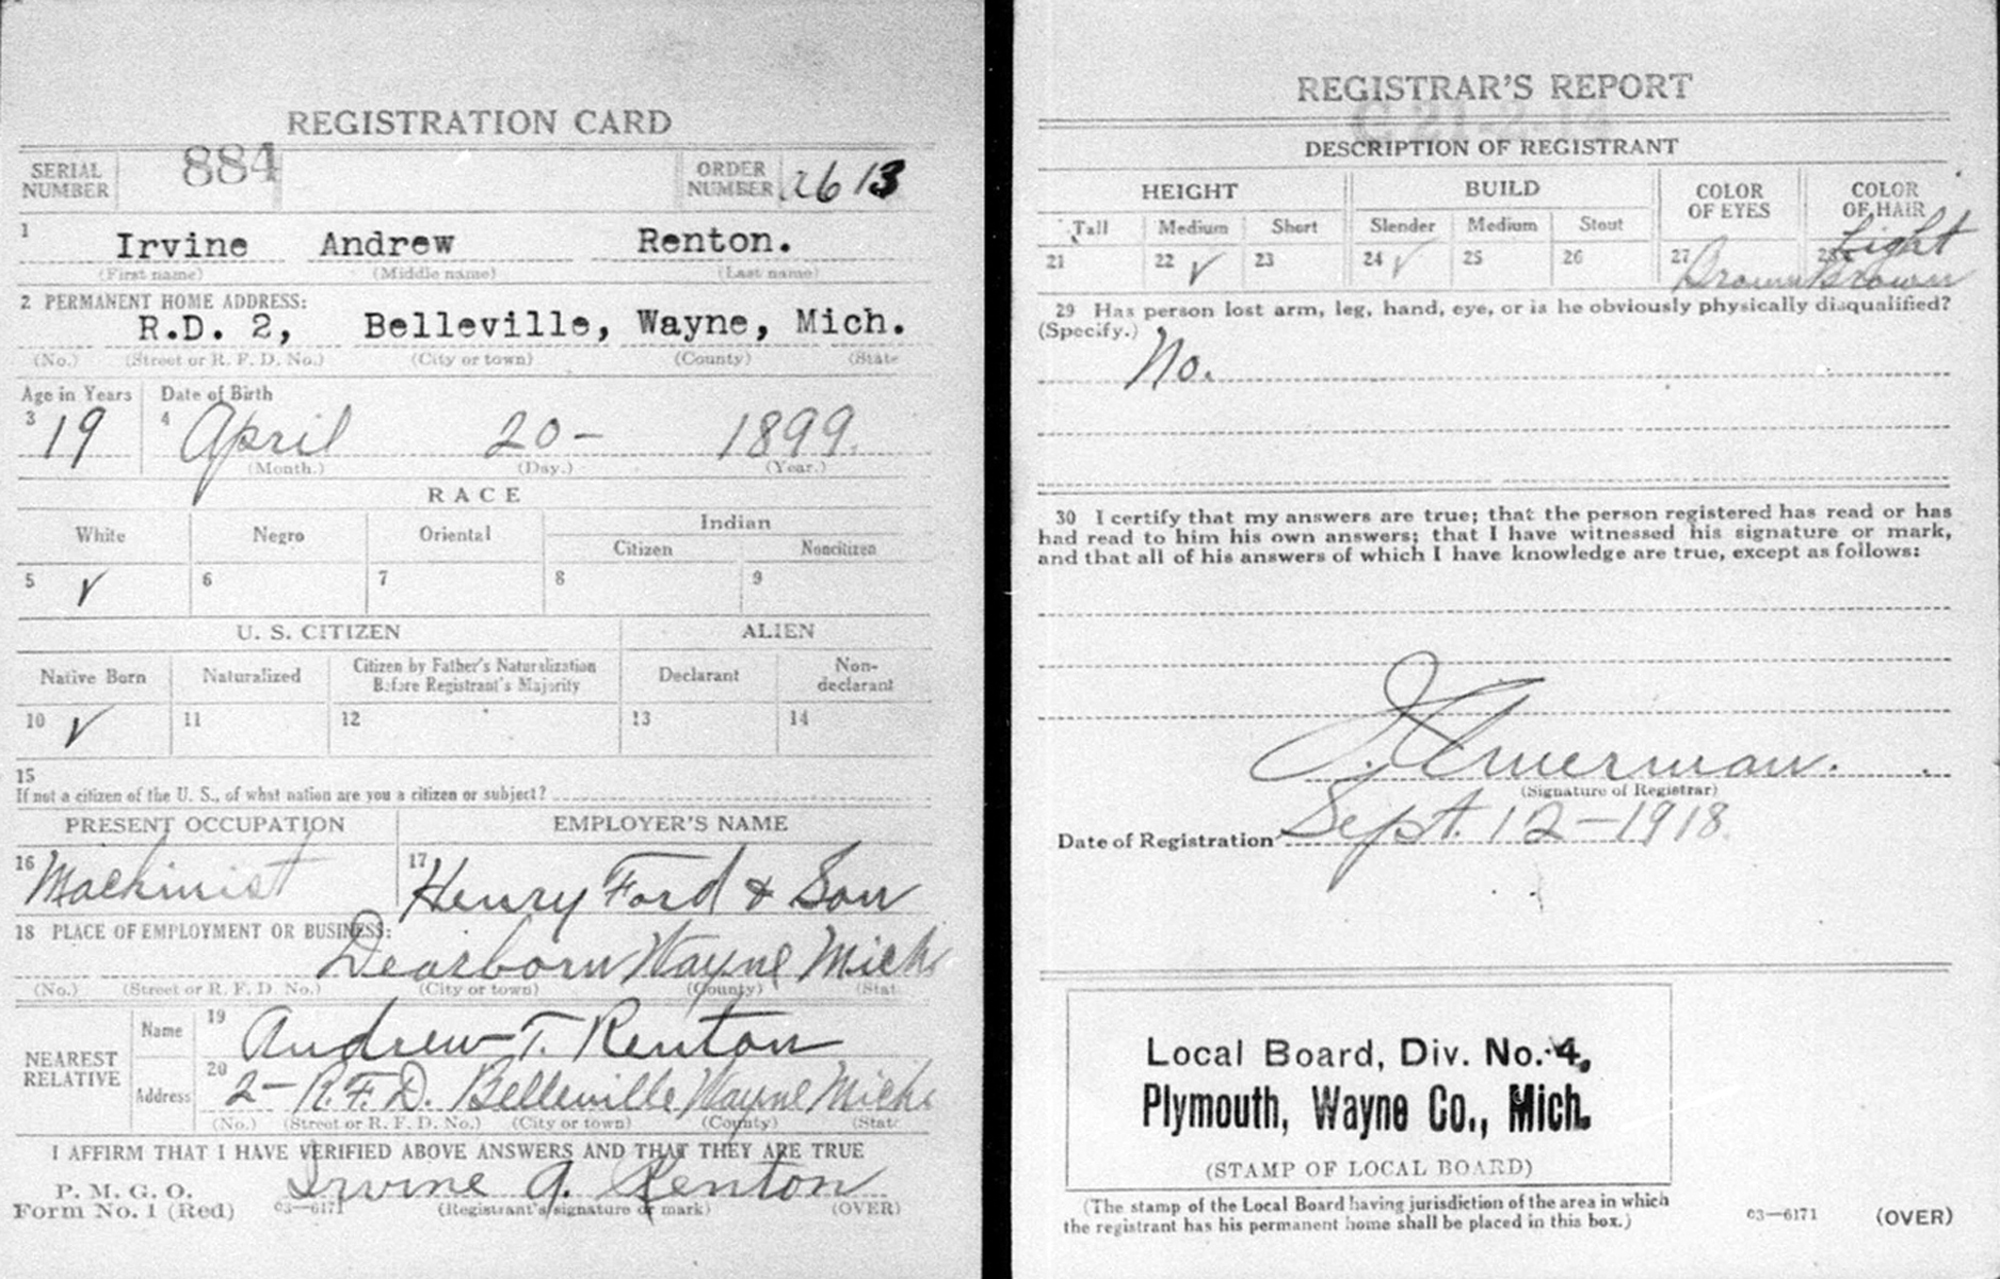 REGISTRATION CARD
SERIAL NUMBER 884 ORDER NUMBER 2613
1 Irvine Andrew Renton.
(First name) (Middle name) (Last name)
2 PERMANENT HOME ADDRESS:
R.D. 2, Belleville, Wayne, Mich.
(No.) (Street or R. F. D. No.) (City or town) (County) (State
Age in Years Date of Birth
3 19 4 April 20- 1899.
(Month.) (Day.) (Year.)
RACE
White Negro Oriental Indian
Citizen Noncitizen
5 ✓ 6 7 8 9
U. S. CITIZEN ALIEN
Native Born Naturalized Citizen by Father's Naturalization Before Registrant's Majority Declarant Non-declarant
10 ✓ 11 12 13 14
15
If not a citizen of the U. S., of what nation are you a citizen or subject?
PRESENT OCCUPATION EMPLOYER'S NAME
16 Machinist 17 Henry Ford & Son
18 PLACE OF EMPLOYMENT OR BUSINESS:
Dearborn Wayne Mich
(No.) (Street or R. F. D. No.) (City or town) (County) (Stat
NEAREST RELATIVE
Name 19 Andrew T. Renton
Address 20 2- R.F.D. Belleville Wayne Mich
(No.) (Street or R. F. D. No.) (City or town) (County) (State
I AFFIRM THAT I HAVE VERIFIED ABOVE ANSWERS AND THAT THEY ARE TRUE
P. M. G. O.
Form No. 1 (Red) 03—6171 Irvine A. Renton
(Registrant's signature or mark) (OVER)
REGISTRAR'S REPORT
DESCRIPTION OF REGISTRANT
HEIGHT BUILD COLOR OF EYES COLOR OF HAIR
Tall Medium Short Slender Medium Stout
21 22 ✓ 23 24 ✓ 25 26 27 Brown 28 Light Brown
29 Has person lost arm, leg, hand, eye, or is he obviously physically disqualified?
(Specify.)
No.
30 I certify that my answers are true; that the person registered has read or has
had read to him his own answers; that I have witnessed his signature or mark,
and that all of his answers of which I have knowledge are true, except as follows:
(Signature of Registrar)
Date of Registration Sept. 12-1918.
Local Board, Div. No. 4,
Plymouth, Wayne Co., Mich.
(STAMP OF LOCAL BOARD)
(The stamp of the Local Board having jurisdiction of the area in which
the registrant has his permanent home shall be placed in this box.)
03—6171 (OVER)